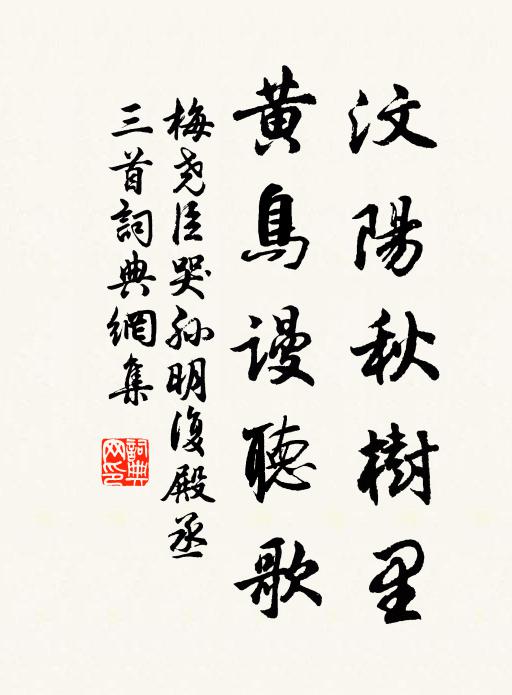 汶陽秋樹里
黃鳥謾聽歌
梅尧臣哭孙明復殿丞
三首詞典網集
詞典
网印